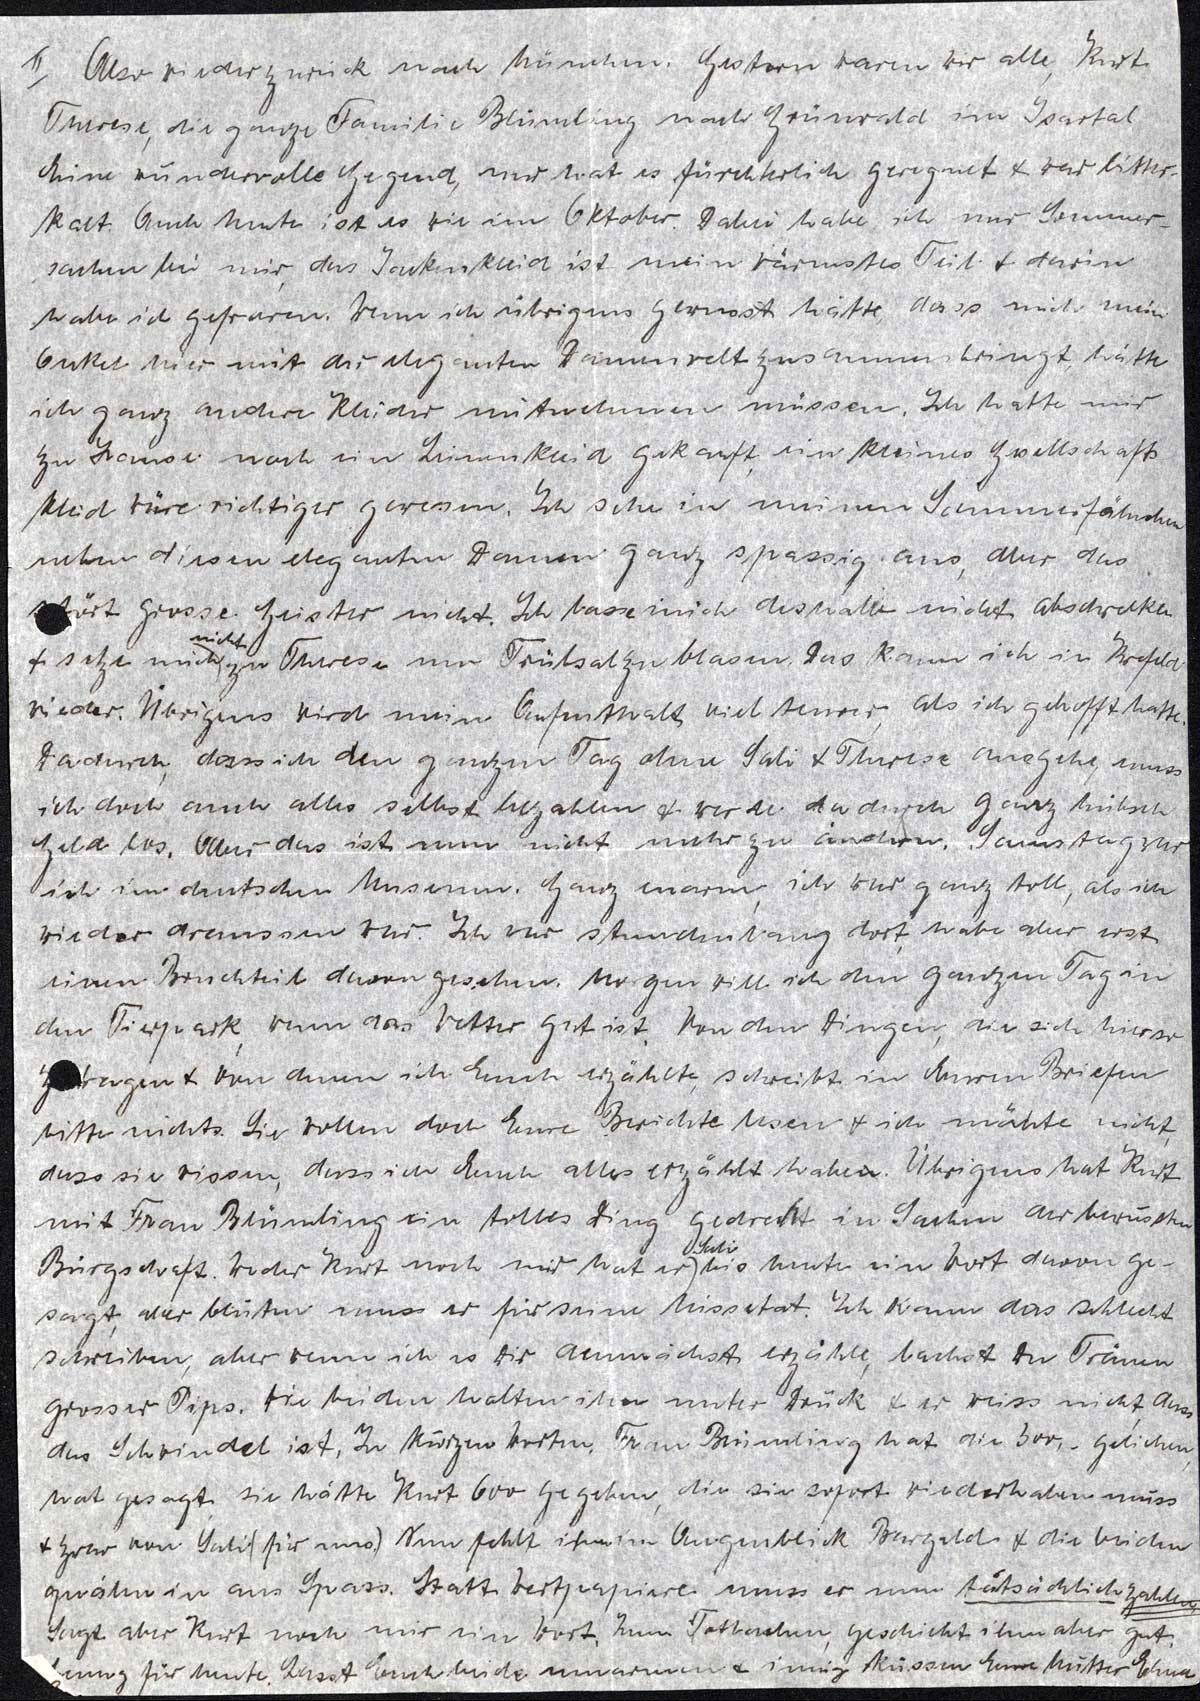 II, Also wieder zurück nach München. Gestern waren wir alle, Kurt
Therese, die ganze Familie Blümling nach Grünwald im Isartal
Eine wundervolle Gegend, nur hat es fürchterlich geregnet & war bitter-
kalt. Auch heute ist es wie im Oktober. Dabei habe ich nur Sommer-
sachen bei mir, das Jackenkleid ist mein wärmstes Teil & darin
habe ich gefroren. Wenn ich übrigens gewusst hätte, dass mich mein
Onkel hier mit der eleganten Damenwelt zusammenbringt, hätte
ich ganz andere Kleider mitnehmen müssen. Ich hatte mir
zu Hause noch ein Leinenkleid gekauft, ein kleines Gesellschafts
kleid wäre richtiger gewesen. Ich sehe in meinen Sommerfähnchen
neben diesen eleganten Damen ganz spassig aus, aber das
stört grosse Geister nicht. Ich lasse mich deshalb nicht abschrecken
& setze mich nicht zu Therese um Trübsal zu blasen. Das kann ich in Krefeld
wieder. Übrigens wird mein Aufenthalt viel teurer, als ich gehofft hatte.
Dadurch, dass ich den ganzen Tag ohne Sali & Therese ausgehe, muss
ich doch auch alles selbst bezahlen & werde dadurch ganz hübsch
Geld los. Aber das ist nun nicht mehr zu ändern. Samstag war
ich im deutschen Museum. Ganz enorm, ich war ganz toll, als ich
wieder draussen war. Ich war stundenlang dort, habe aber erst
einen Bruchteil davon gesehen. Morgen will ich den ganzen Tag in
den Tierpark, wenn das Wetter gut ist. Von den Dingen, die sich hier so
zutragen & von denen ich Euch erzählte, schreibt in Euren Briefen
bitte nichts. Sie wollen doch Eure Berichte lesen & ich möchte nicht,
dass sie wissen, dass ich Euch alles erzählt habe. Übrigens hat Kurt
mit Frau Blümling ein tolles Ding gedreht in Sachen der bewussten
Bürgschaft. Weder Kurt noch mir hat er (Sali) bis heute ein Wort davon ge-
sagt, aber bluten muss er für seine Missetat. Ich kann das schlecht
schreiben, aber wenn ich es Dir demnächst erzähle, lachst Du Tränen
grosser Pips. Die beiden halten ihn unter Druck & er weiss nicht, dass
das Schwindel ist. In kurzen Worten. Frau Blümling hat die 300,- geliehen,
hat gesagt, sie hätte Kurt 600 gegeben, die sie sofort wiederhaben muss
& zwar von Sali (für uns.) Nun fehlt ihm im Augenblick Bargeld & die beiden
quälen in aus Spass. Statt Wertpapiere muss er nun tatsächlich zahlen
Sagt aber Kurt noch mir ein Wort. Zum Totlachen, geschieht ihm aber gut.
Genug für heute. Lasst Euch beide umarmen & innig küssen Eure Mutter Erna